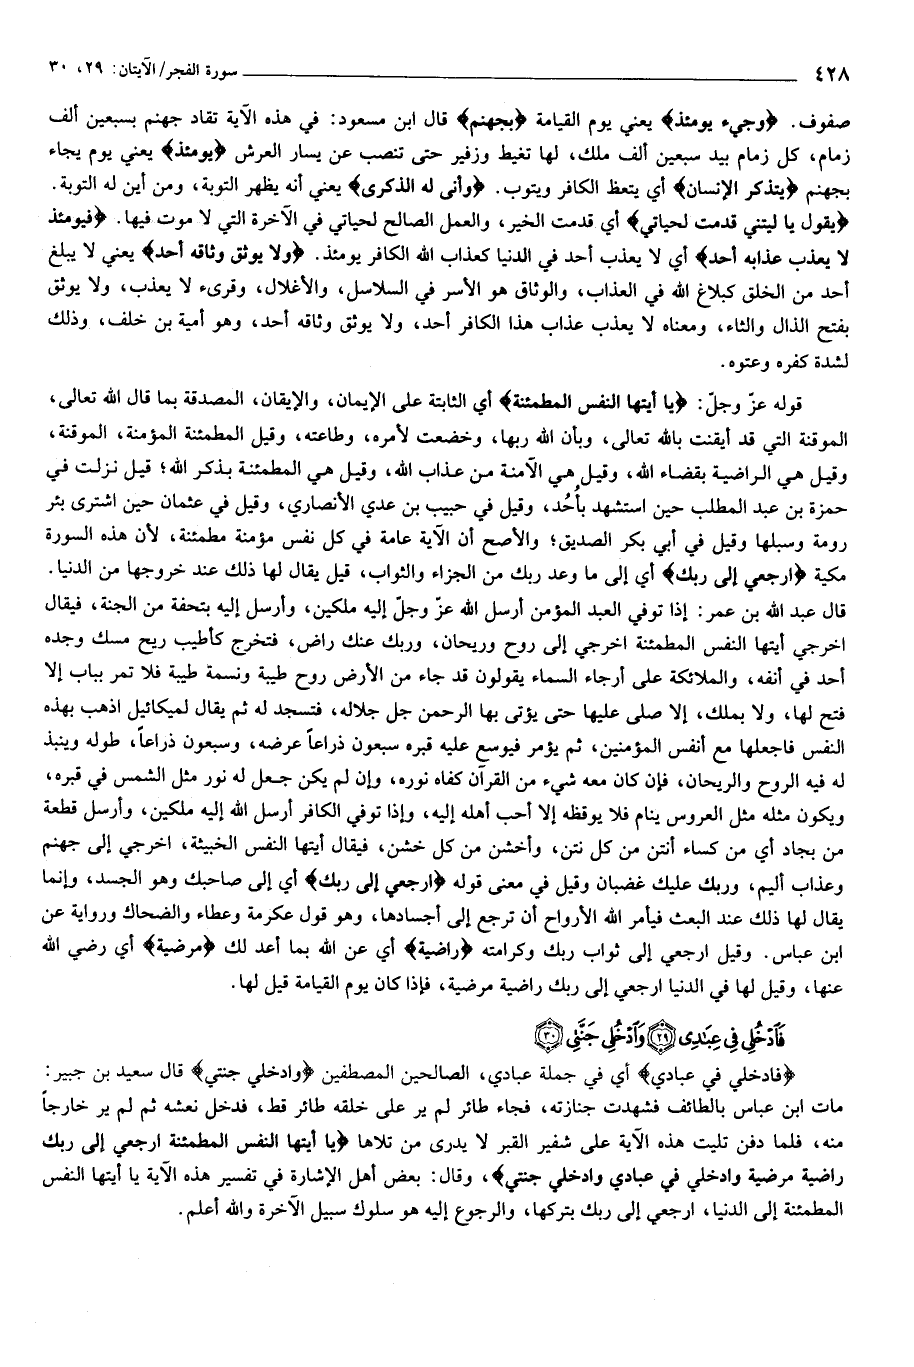 ٤٢٨ سورة الفجر/ الآيتان: ٢٩، ٣٠
صفوف. ﴿وجيء يومئذ﴾ يعني يوم القيامة ﴿بجهنم﴾ قال ابن مسعود: في هذه الآية تقاد جهنم بسبعين ألف
زمام، كل زمام بيد سبعين ألف ملك، لها تغيط وزفير حتى تنصب عن يسار العرش ﴿يومئذ﴾ يعني يوم يجاء
بجهنم ﴿يتذكر الإنسان﴾ أي يتعظ الكافر ويتوب. ﴿وأنى له الذكرى﴾ يعني أنه يظهر التوبة، ومن أين له التوبة.
﴿يقول يا ليتني قدمت لحياتي﴾ أي قدمت الخير، والعمل الصالح لحياتي في الآخرة التي لا موت فيها. ﴿فيومئذ
لا يعذب عذابه أحد﴾ أي لا يعذب أحد في الدنيا كعذاب الله الكافر يومئذ. ﴿ولا يوثق وثاقه أحد﴾ يعني لا يبلغ
أحد من الخلق كبلاغ الله في العذاب، والوثاق هو الأسر في السلاسل، والأغلال، وقرىء لا يعذب، ولا يوثق
بفتح الذال والثاء، ومعناه لا يعذب عذاب هذا الكافر أحد، ولا يوثق وثاقه أحد، وهو أمية بن خلف، وذلك
لشدة كفره وعتوه.
قوله عزّ وجلّ: ﴿يا أيتها النفس المطمئنة﴾ أي الثابتة على الإيمان، والإيقان، المصدقة بما قال الله تعالى،
الموقنة التي قد أيقنت بالله تعالى، وبأن الله ربها، وخضعت لأمره، وطاعته، وقيل المطمئنة المؤمنة، الموقنة،
وقيل هي الراضية بقضاء الله، وقيل هي الآمنة من عذاب الله، وقيل هي المطمئنة بذكر الله؛ قيل نزلت في
حمزة بن عبد المطلب حين استشهد بأُحُد، وقيل في حبيب بن عدي الأنصاري، وقيل في عثمان حين اشترى بئر
رومة وسبلها وقيل في أبي بكر الصديق؛ والأصح أن الآية عامة في كل نفس مؤمنة مطمئنة، لأن هذه السورة
مكية ﴿ارجعي إلى ربك﴾ أي إلى ما وعد ربك من الجزاء والثواب، قيل يقال لها ذلك عند خروجها من الدنيا.
قال عبد الله بن عمر: إذا توفي العبد المؤمن أرسل الله عزّ وجلّ إليه ملكين، وأرسل إليه بتحفة من الجنة، فيقال
اخرجي أيتها النفس المطمئنة اخرجي إلى روح وريحان، وربك عنك راض، فتخرج كأطيب ريح مسك وجده
أحد في أنفه، والملائكة على أرجاء السماء يقولون قد جاء من الأرض روح طيبة ونسمة طيبة فلا تمر بباب إلا
فتح لها، ولا بملك، إلا صلى عليها حتى يؤتى بها الرحمن جل جلاله، فتسجد له ثم يقال لميكائيل اذهب بهذه
النفس فاجعلها مع أنفس المؤمنين، ثم يؤمر فيوسع عليه قبره سبعون ذراعاً عرضه، وسبعون ذراعاً، طوله وينبذ
له فيه الروح والريحان، فإن كان معه شيء من القرآن كفاه نوره، وإن لم يكن جعل له نور مثل الشمس في قبره،
ويكون مثله مثل العروس ينام فلا يوقظه إلا أحب أهله إليه، وإذا توفي الكافر أرسل الله إليه ملكين، وأرسل قطعة
من بجاد أي من كساء أنتن من كل نتن، وأخشن من كل خشن، فيقال أيتها النفس الخبيثة، اخرجي إلى جهنم
وعذاب أليم، وربك عليك غضبان وقيل في معنى قوله ﴿ارجعي إلى ربك﴾ أي إلى صاحبك وهو الجسد، وإنما
يقال لها ذلك عند البعث فيأمر الله الأرواح أن ترجع إلى أجسادها، وهو قول عكرمة وعطاء والضحاك ورواية عن
ابن عباس. وقيل ارجعي إلى ثواب ربك وكرامته ﴿راضية﴾ أي عن الله بما أعد لك ﴿مرضية﴾ أي رضي الله
عنها، وقيل لها في الدنيا ارجعي إلى ربك راضية مرضية، فإذا كان يوم القيامة قيل لها.
فَٱدْخُلِى فِى عِبَٰدِى ﴿٢٩﴾ وَٱدْخُلِى جَنَّتِى ﴿٣٠﴾
﴿فادخلي في عبادي﴾ أي في جملة عبادي، الصالحين المصطفين ﴿وادخلي جنتي﴾ قال سعيد بن جبير:
مات ابن عباس بالطائف فشهدت جنازته، فجاء طائر لم ير على خلقه طائر قط، فدخل نعشه ثم لم ير خارجاً
منه، فلما دفن تليت هذه الآية على شفير القبر لا يدرى من تلاها ﴿يا أيتها النفس المطمئنة ارجعي إلى ربك
راضية مرضية وادخلي في عبادي وادخلي جنتي﴾، وقال: بعض أهل الإشارة في تفسير هذه الآية يا أيتها النفس
المطمئنة إلى الدنيا، ارجعي إلى ربك بتركها، والرجوع إليه هو سلوك سبيل الآخرة والله أعلم.